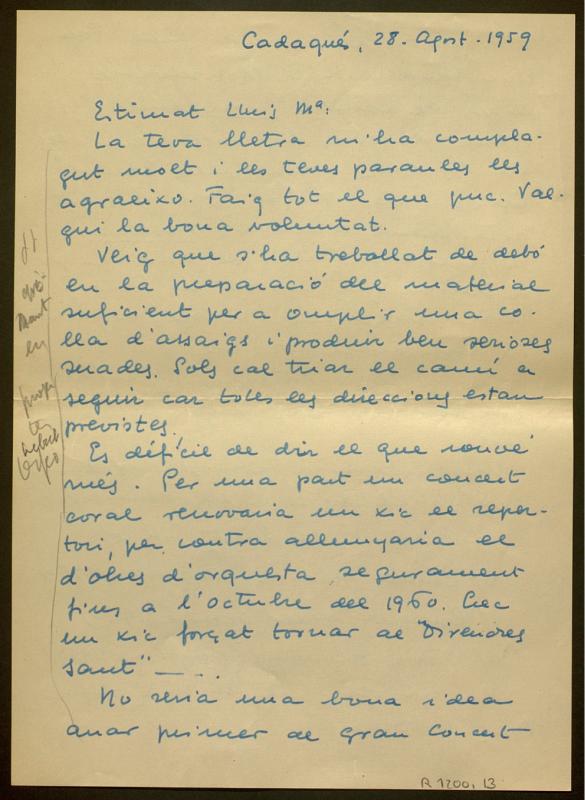 Cadaqués, 28. Agost. 1959
Estimat Lluis Mª:
La teva lletra m'ha compla-
gut molt i les teves paraules les
agraeixo. Faig tot el que puc. Val-
gui la bona voluntat.
Veig que s'ha treballat de debó
en la preparació del material
suficient per a omplir una co-
lla d'assaigs i produir ben serioses
suades. Sols cal triar el camí a
seguir car totes les direccions estan
previstes.
Es difícil de dir el que convé
més. Per una part un concert
coral renovaria un xic el reper-
tori, per contra allunyaria el
d'obres d'orquesta segurament
fins a l'Octubre del 1960. Crec
un xic forçat tornar al "Divendres
Sant" — . .
No seria una bona idea
anar primer al Gran Concert
en
R 1200, 13